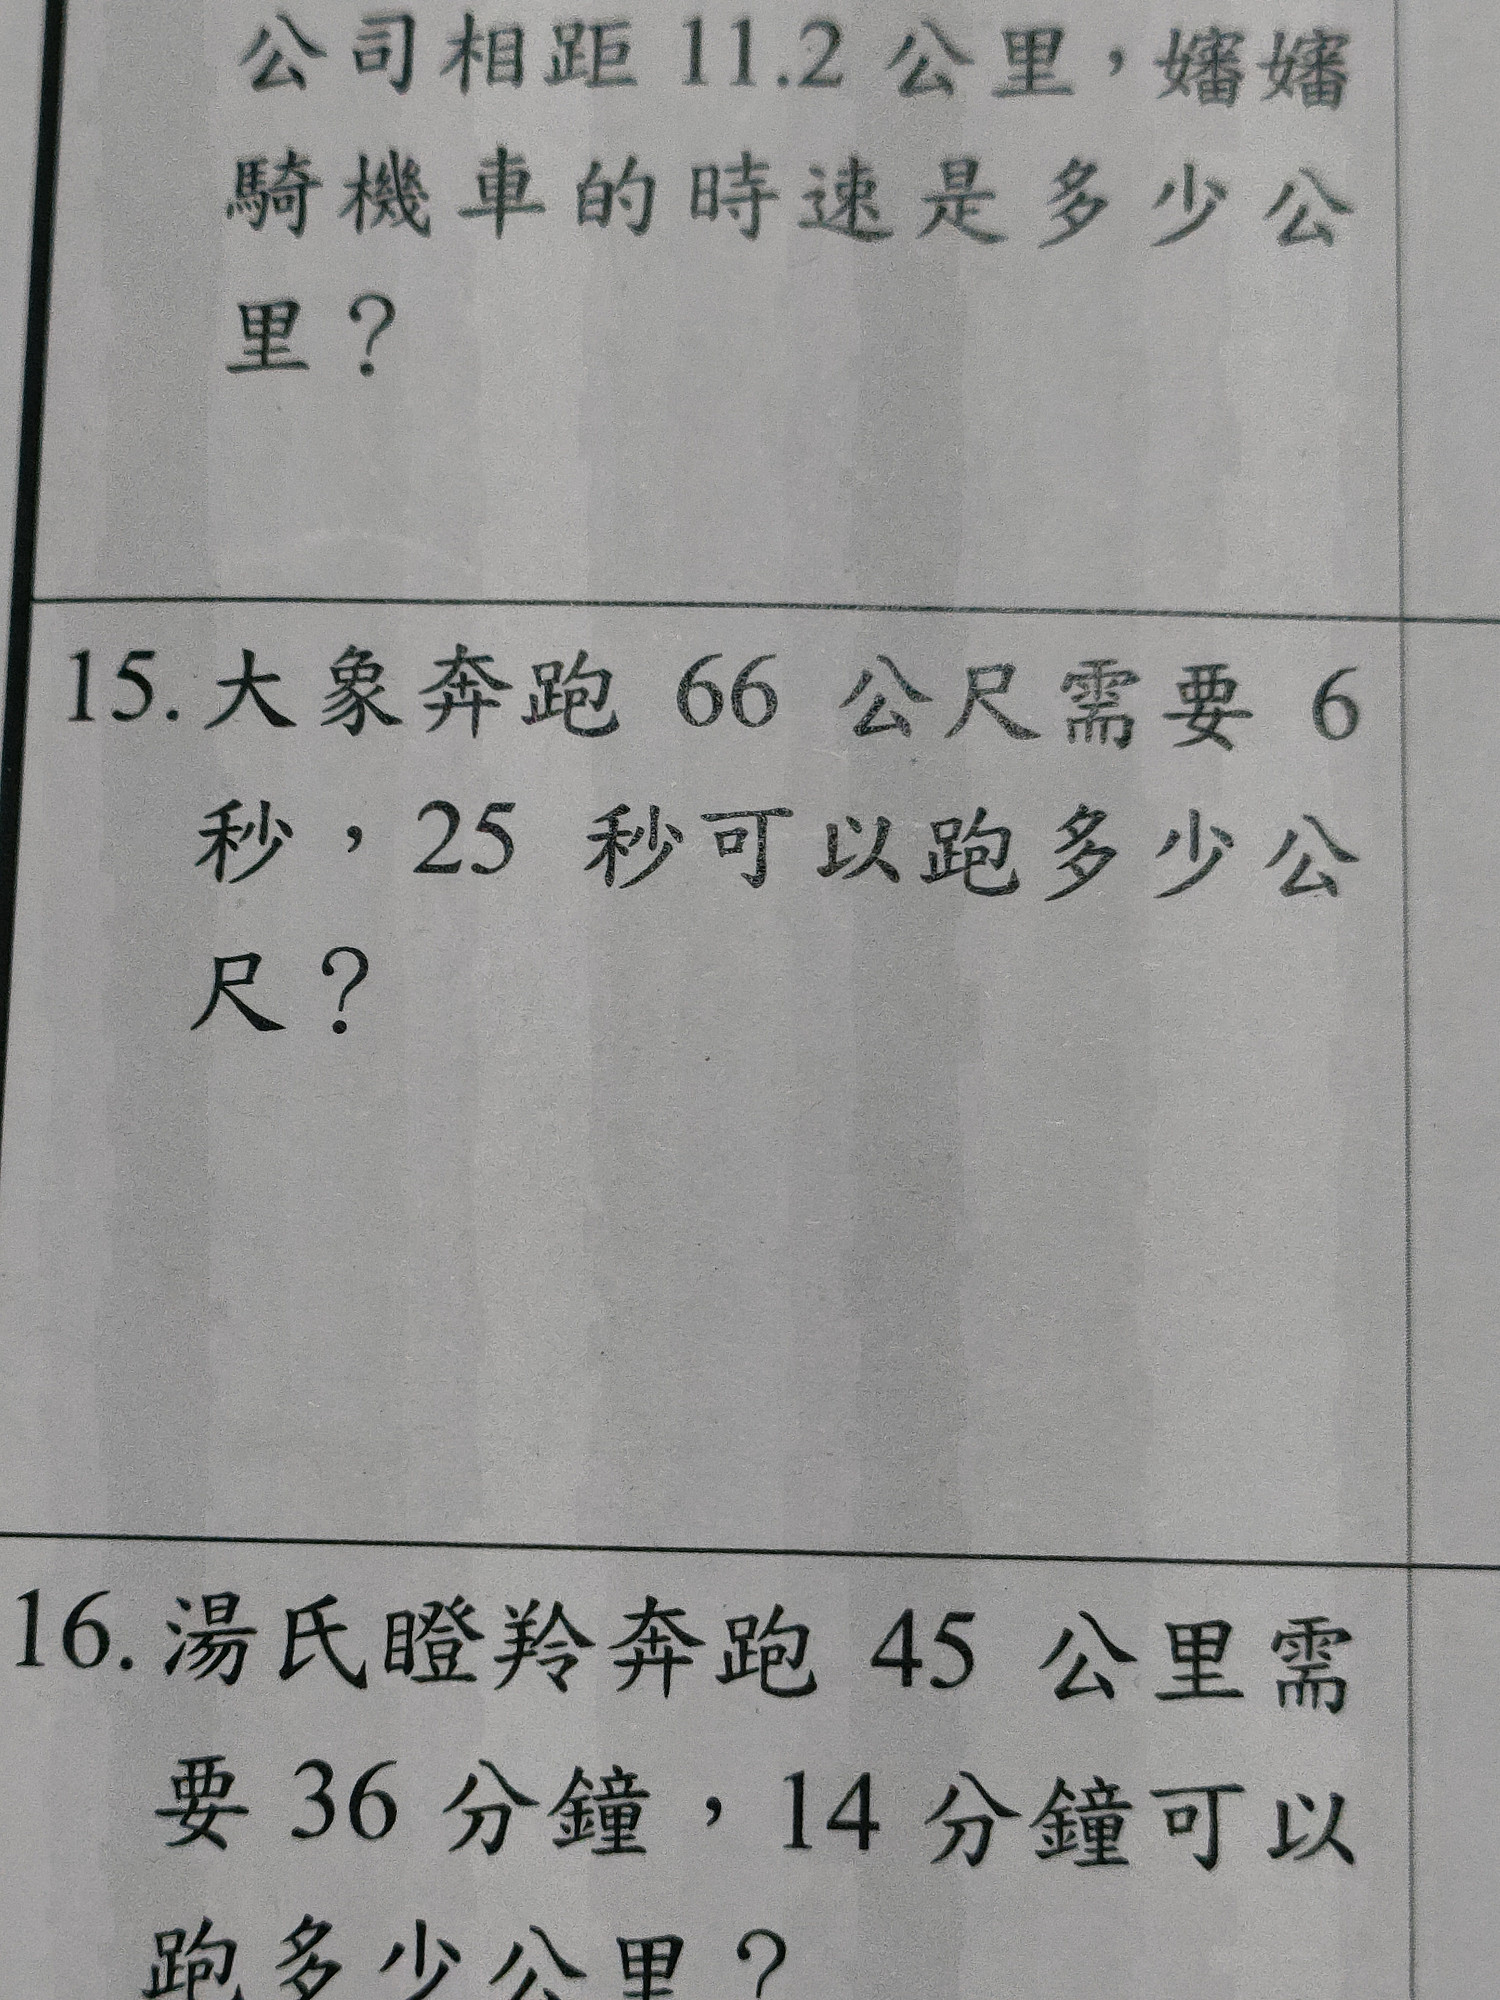 公司相距 11.2 公里，嬸嬸
騎機車的時速是多少公
里？
15. 大象奔跑 66 公尺需要 6
秒，25 秒可以跑多少公
尺？
16. 湯氏瞪羚奔跑 45 公里需
要 36 分鐘，14 分鐘可以
跑多少公里？